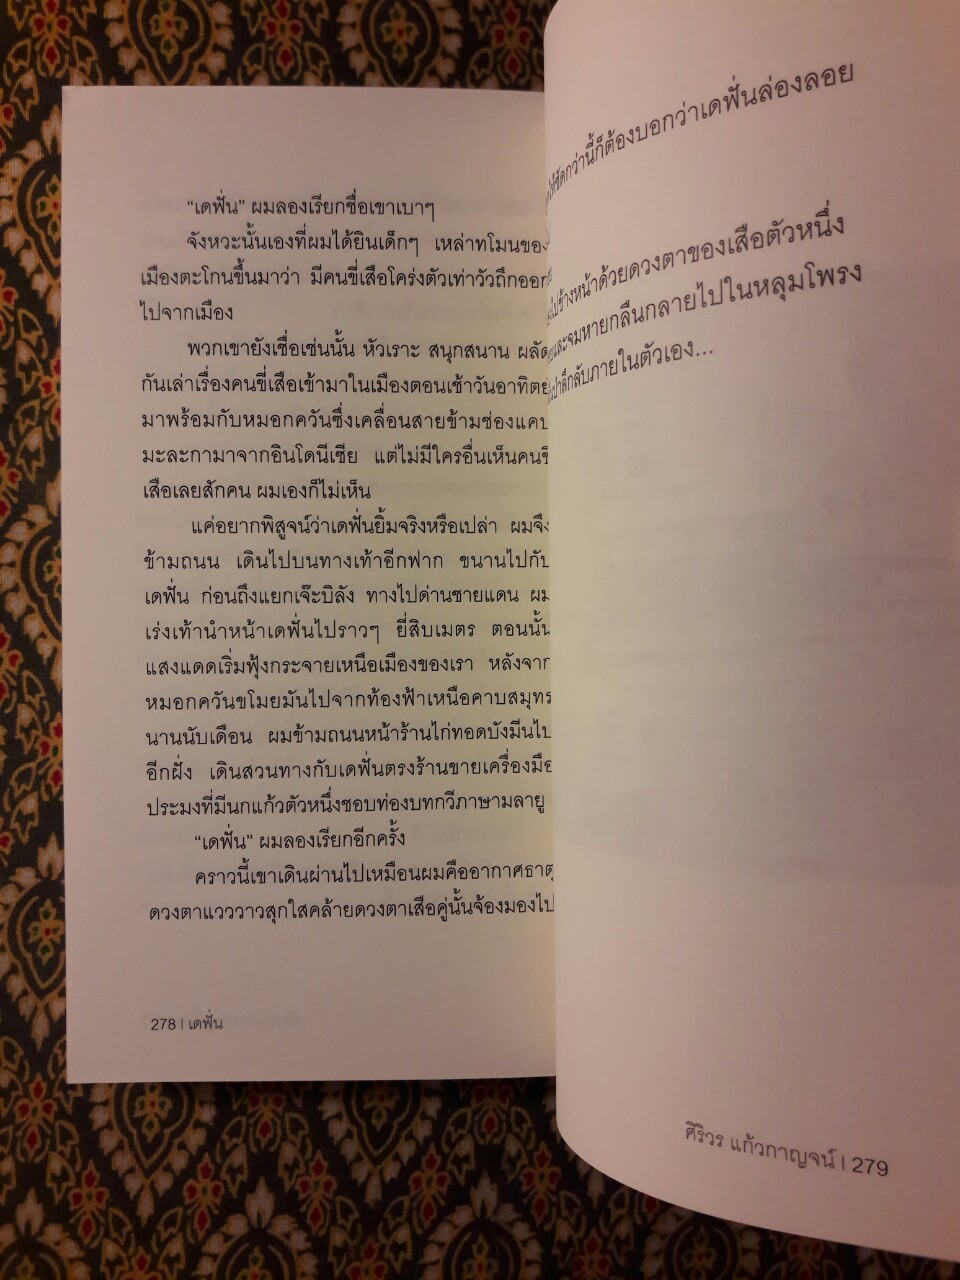 “เดฟั่น” ผมลองเรียกชื่อเขาเบาๆ
จังหวะนั้นเองที่ผมได้ยินเด็กๆ เหล่าทโมนของ
เมืองตะโกนขึ้นมาว่า มีคนขี่เสือโคร่งตัวเท่าวัวถึกออก
ไปจากเมือง
พวกเขายังเชื่อเช่นนั้น หัวเราะ สนุกสนาน ผลัด
กันเล่าเรื่องคนขี่เสือเข้ามาในเมืองตอนเช้าวันอาทิตย์
มาพร้อมกับหมอกควันซึ่งเคลื่อนสายข้ามช่องแคบ
มะละกามาจากอินโดนีเซีย แต่ไม่มีใครอื่นเห็นคนขี่
เสือเลยสักคน ผมเองก็ไม่เห็น
แค่อยากพิสูจน์ว่าเดฟั่นยิ้มจริงหรือเปล่า ผมจึง
ข้ามถนน เดินไปบนทางเท้าอีกฟาก ขนานไปกับ
เดฟั่น ก่อนถึงแยกเจ๊ะบิลัง ทางไปด่านชายแดน ผม
เร่งเท้านำหน้าเดฟั่นไปราวๆ ยี่สิบเมตร ตอนนั้น
แสงแดดเริ่มฟุ้งกระจายเหนือเมืองของเรา หลังจาก
หมอกควันขโมยมันไปจากท้องฟ้าเหนือคาบสมุทร
นานนับเดือน ผมข้ามถนนหน้าร้านไก่ทอดบังมีนไป
อีกฝั่ง เดินสวนทางกับเดฟั่นตรงร้านขายเครื่องมือ
ประมงที่มีนกแก้วตัวหนึ่งชอบท่องบทกวีภาษามลายู
“เดฟั่น” ผมลองเรียกอีกครั้ง
คราวนี้เขาเดินผ่านไปเหมือนผมคืออากาศธาตุ
ดวงตาแวววาวสุกใสคล้ายดวงตาเสือคู่นั้นจ้องมองไป
278 | เดฟั่น
ให้ชัดกว่านี้ก็ต้องบอกว่าเดฟั่นล่องลอย
ไปข้างหน้าด้วยดวงตาของเสือตัวหนึ่ง
และจมหายกลืนกลายไปในหลุมโพรง
ป่าลึกลับภายในตัวเอง...
ศิริวร แก้วกาญจน์ | 279